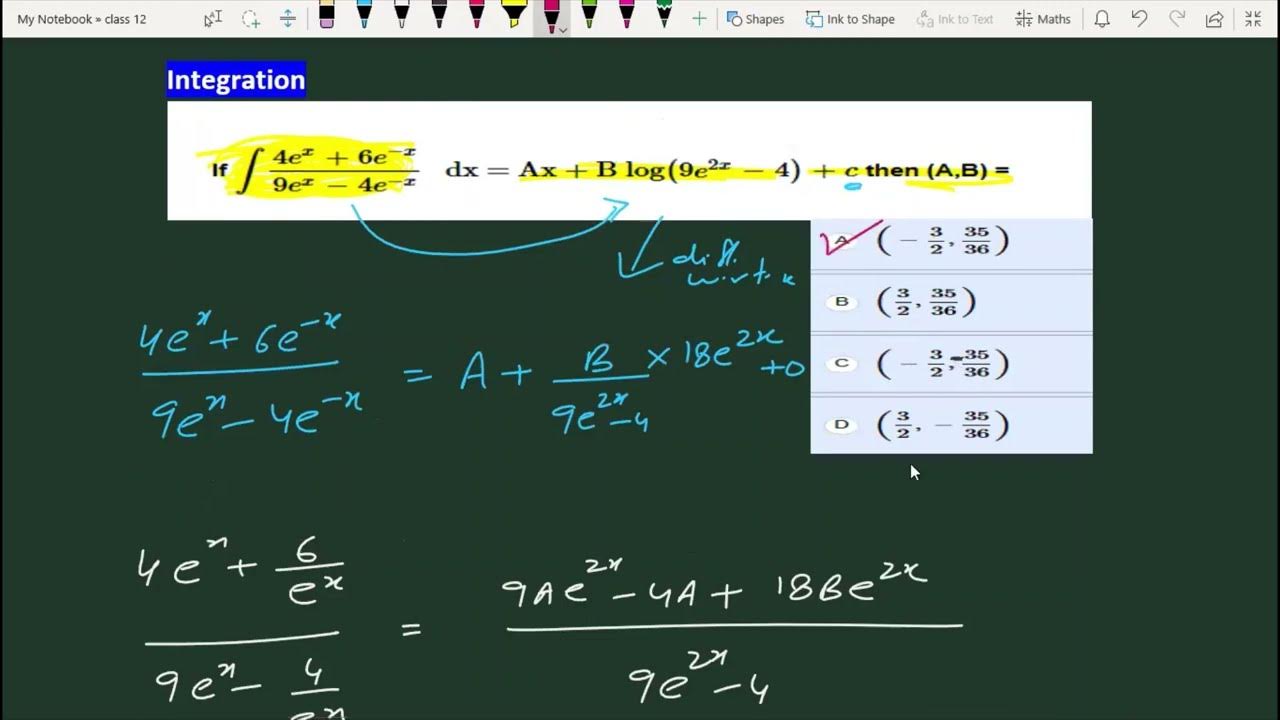 My Notebook » class 12
Shapes
Ink to Shape
Ink to Text
Maths
Integration
If ∫ (4eˣ + 6e⁻ˣ)/(9eˣ − 4e⁻ˣ) dx = Ax + B log(9e²ˣ − 4) + c then (A,B) =
A (− 3/2, 35/36)
B (3/2, 35/36)
C (− 3/2, -35/36)
D (3/2, − 35/36)
diff. w.r.t. x
(4eˣ + 6e⁻ˣ)/(9eˣ − 4e⁻ˣ) = A + B/(9e²ˣ − 4) × 18e²ˣ + 0
(4eˣ + 6/eˣ)/(9eˣ − 4/eˣ) = (9Ae²ˣ − 4A + 18Be²ˣ)/(9e²ˣ − 4)